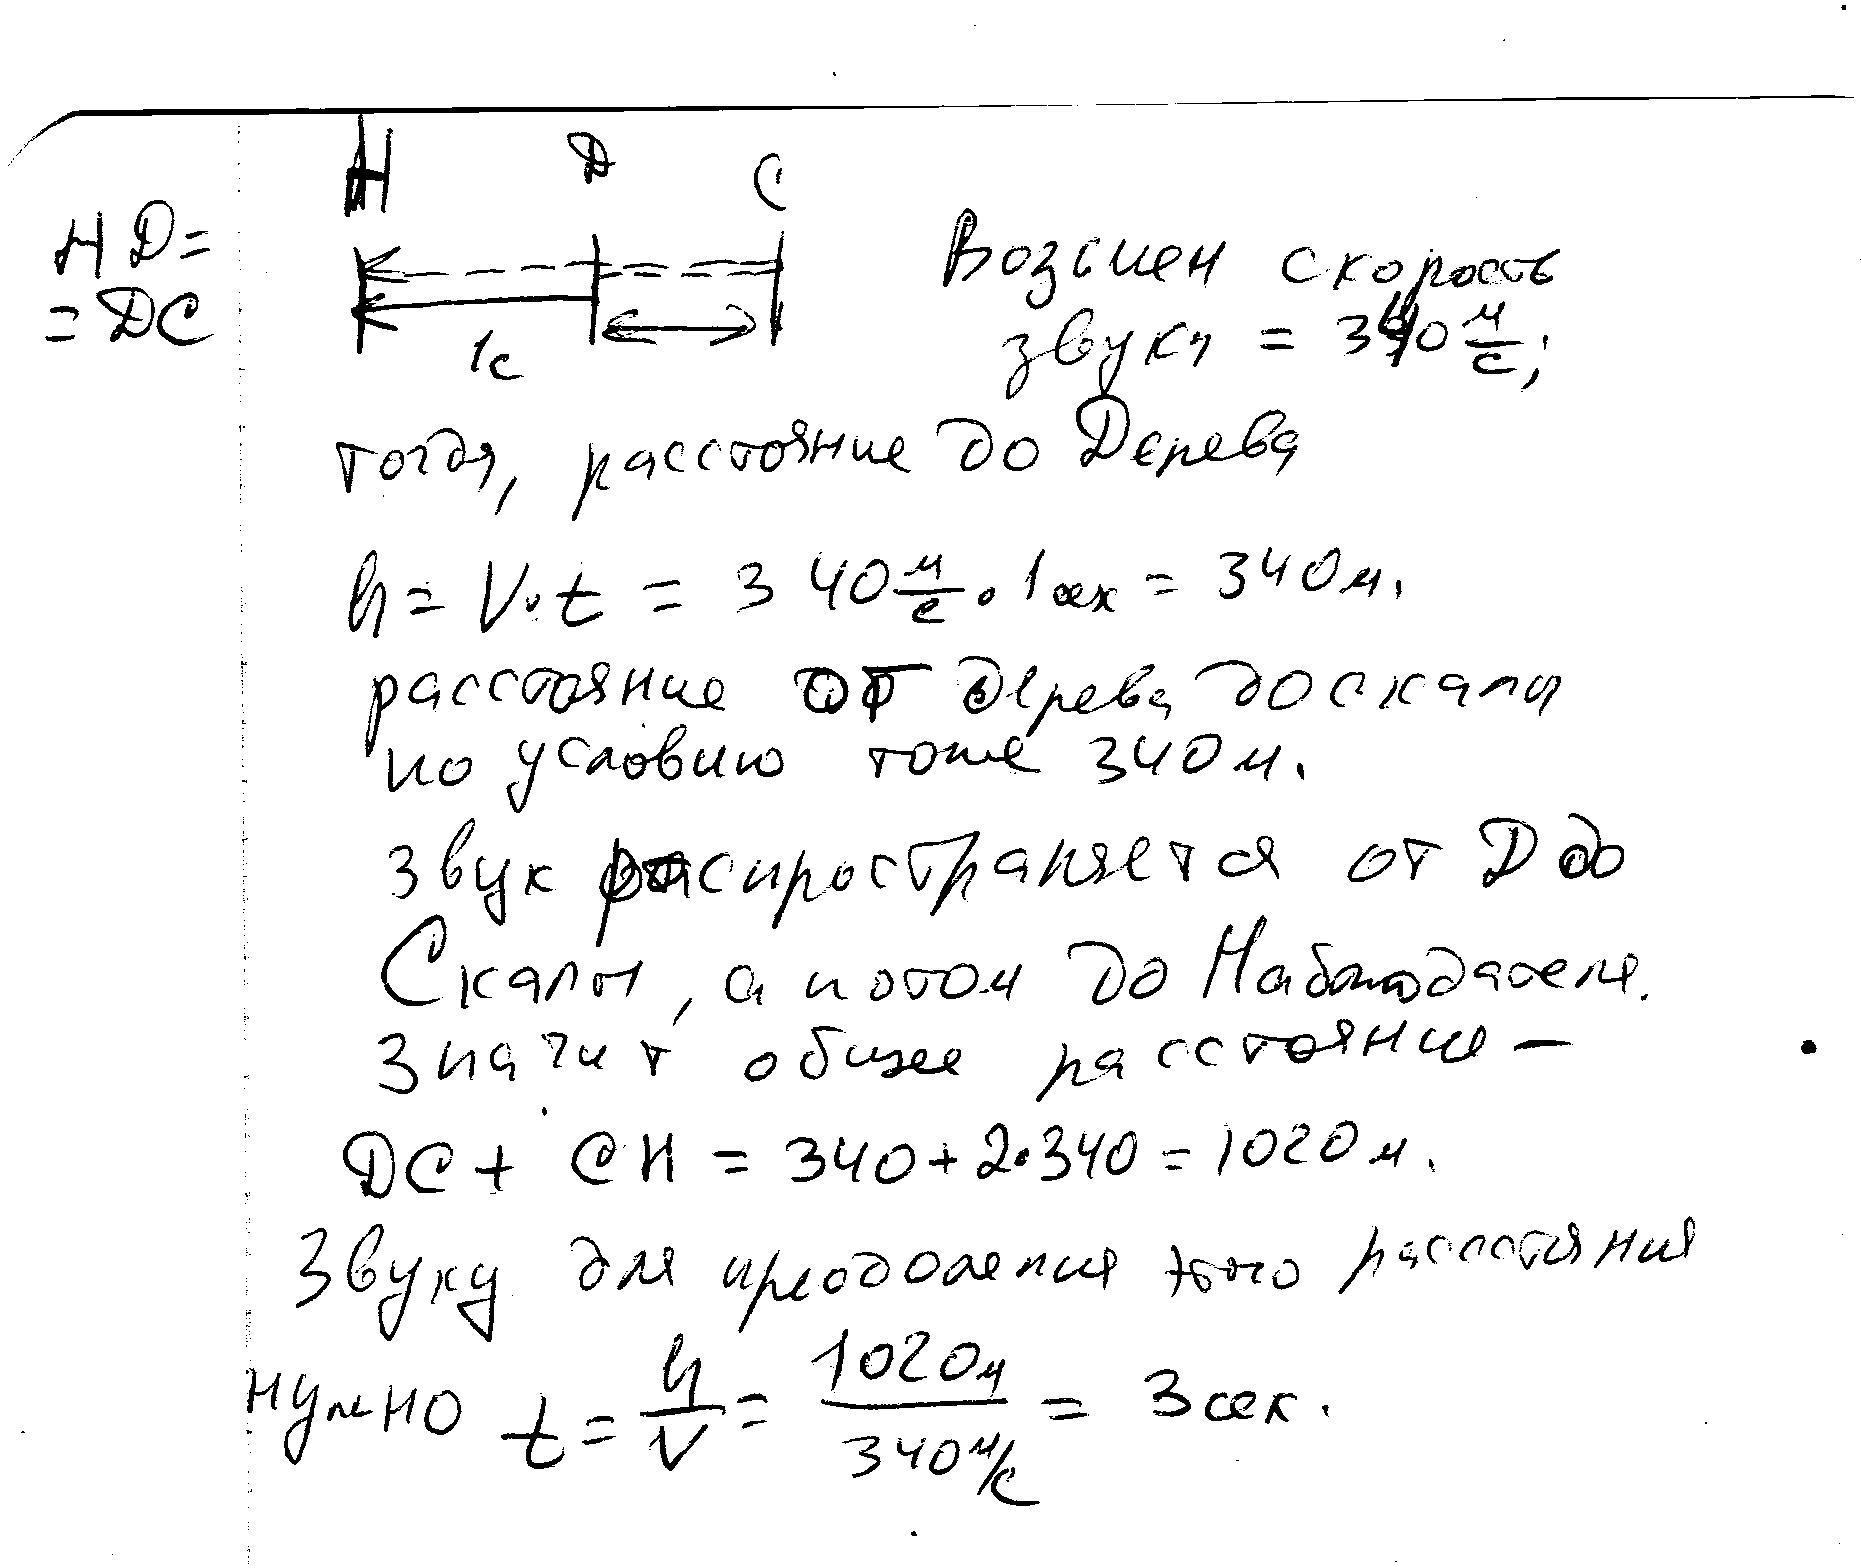 Н D С
НD=
=DC
1с
Возьмем скорость
звука = 340 м/с;
тогда, расстояние до Дерева
h = V·t = 340 м/с · 1сек = 340м.
расстояние от дерева до скалы
по условию тоже 340м.
Звук распространяется от D до
Скалы, а потом до Наблюдателя.
Значит общее расстояние –
DC + CH = 340+2·340 = 1020м.
Звуку для преодоления этого расстояния
нужно t = h/V = 1020м / 340м/с = 3сек.